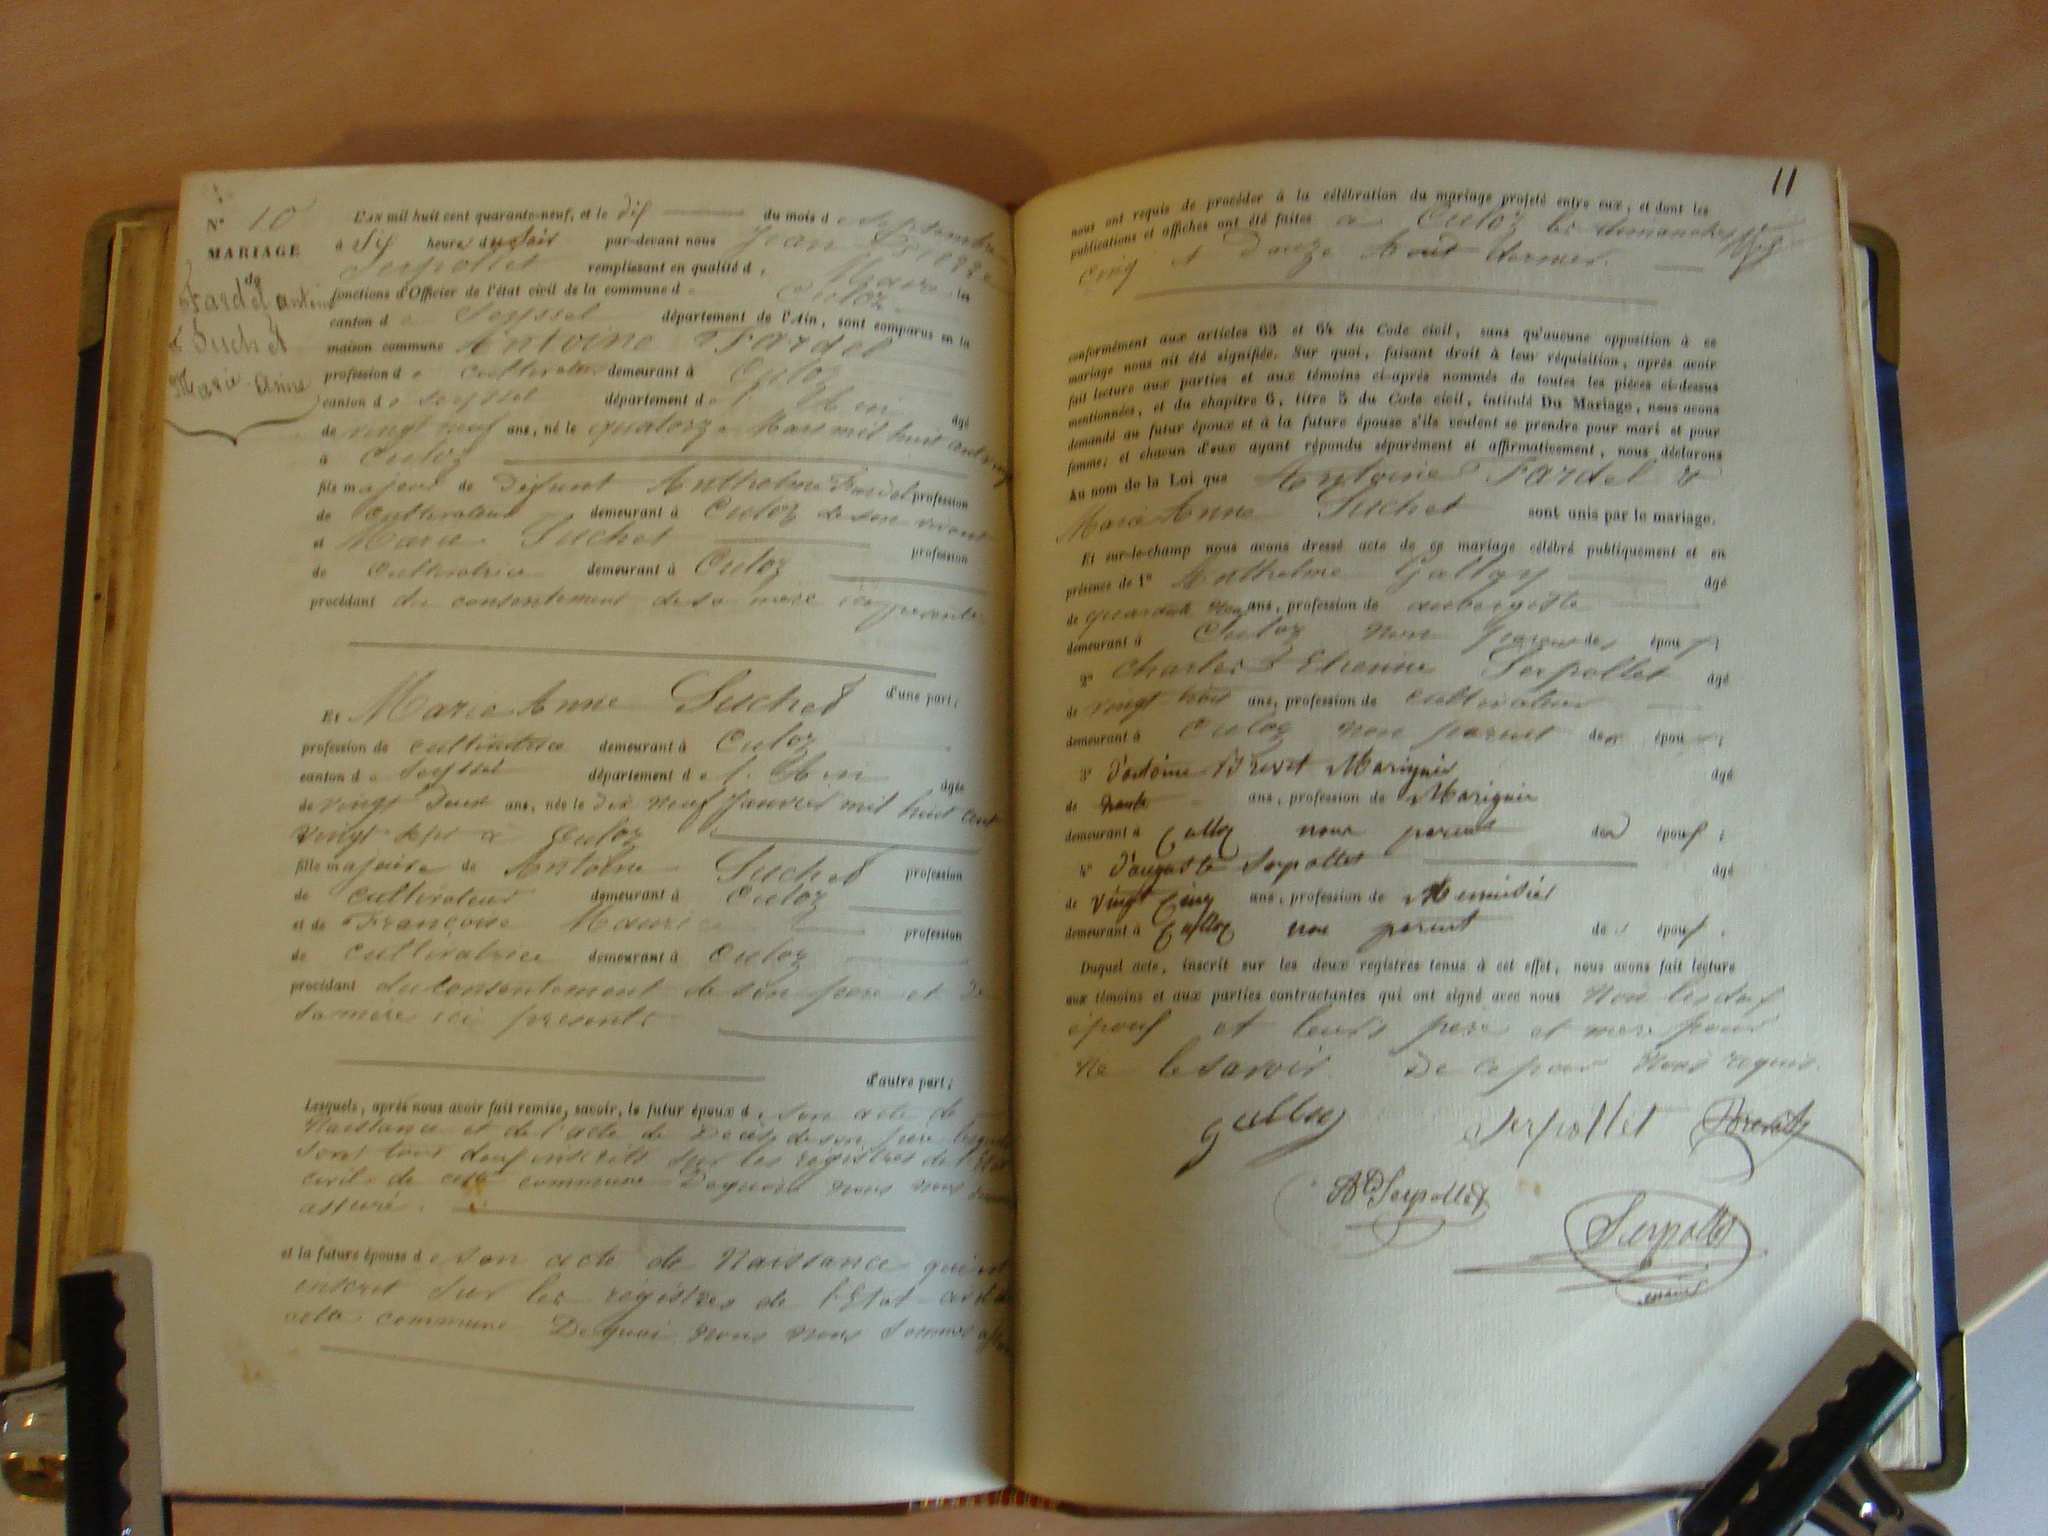 N° 10
MARIAGE
de
Fardel antoine
& Suchet
Marie-anne
L'AN mil huit cent quarante-neuf, et le dix du mois de Septembre
à Six heure du soir par-devant nous Jean Pierre
Serpollet remplissant en qualité d Maire les
fonctions d'Officier de l'état civil de la commune d Culoz
canton de Seyssel département de l'Ain, sont comparus en la
maison commune Antoine Fardel
profession de cultivateur demeurant à Culoz
canton de Seyssel département de l'Ain âgé
de vingt neuf ans, né le quatorze Mars mil huit cent vingt
à Culoz
fils majeur de Défunt Anthelme Fardel profession
de cultivateur demeurant à Culoz de son vivant
et Marie Suchet profession
de cultivatrice demeurant à Culoz
procédant du consentement de sa mere ici presente
d'une part;
Et Marie Anne Suchet
profession de cultivatrice demeurant à Culoz
canton de Seyssel département de l'Ain âgée
de vingt Deux ans, née le Dix Neuf Janvier mil huit cent
vingt sept à Culoz
fille majeure de Antoine Suchet profession
de cultivateur demeurant à Culoz
et de Françoise profession
de cultivatrice demeurant à Culoz
procédant du consentement de son pere et De
sa mere ici presents
d'autre part;
Lesquels, après nous avoir fait remise, savoir, le futur époux de son acte de
Naissance et de l'acte de Décès de son pere lesquels
sont tous deux inscrits sur les registres de l'Etat
civil de cette commune Dequoi nous nous sommes
assuré.
et la future épouse de son acte de Naissance qui est
inscrit sur les régistres de l'Etat civil de
cette commune Dequoi nous nous sommes
11
nous ont requis de procéder à la célébration du mariage projeté entre eux, et dont les
publications et affiches ont été faites à Culoz les dimanches
Cinq & Douze Août dernier.
conformément aux articles 63 et 64 du Code civil, sans qu'aucune opposition à ce
mariage nous ait été signifiée. Sur quoi, faisant droit à leur réquisition, après avoir
fait lecture aux parties et aux témoins ci-après nommés de toutes les pièces ci-dessus
mentionnées, et du chapitre 6, titre 5 du Code civil, intitulé Du Mariage, nous avons
demandé au futur époux et à la future épouse s'ils veulent se prendre pour mari et pour
femme; et chacun d'eux ayant répondu séparément et affirmativement, nous déclarons
Au nom de la Loi que Antoine Fardel &
Marie Anne Suchet sont unis par le mariage.
Et sur-le-champ nous avons dressé acte de ce mariage célébré publiquement et en
présence de 1° Anthelme Galloy âgé
de quarante ans, profession de aubergiste
demeurant à Culoz non parent des époux;
2° Charles Etienne Serpollet âgé
de vingt trois ans, profession de cultivateur
demeurant à Culoz non parent des époux;
3° d'antoine Brevet Marinier âgé
de trente ans, profession de Marinier
demeurant à Culloz non parent des époux;
4° d'auguste Serpollet âgé
de vingt Cinq ans, profession de Menuisier
demeurant à Culloz non parent des époux.
Duquel acte, inscrit sur les deux registres tenus à cet effet, nous avons fait lecture
aux témoins et aux parties contractantes qui ont signé avec nous Non lesdits
époux et leurs pere et mere pour
ne le savoir De ce par Nous requis.
Serpollet Brevet
Serpollet
Serpollet
maire